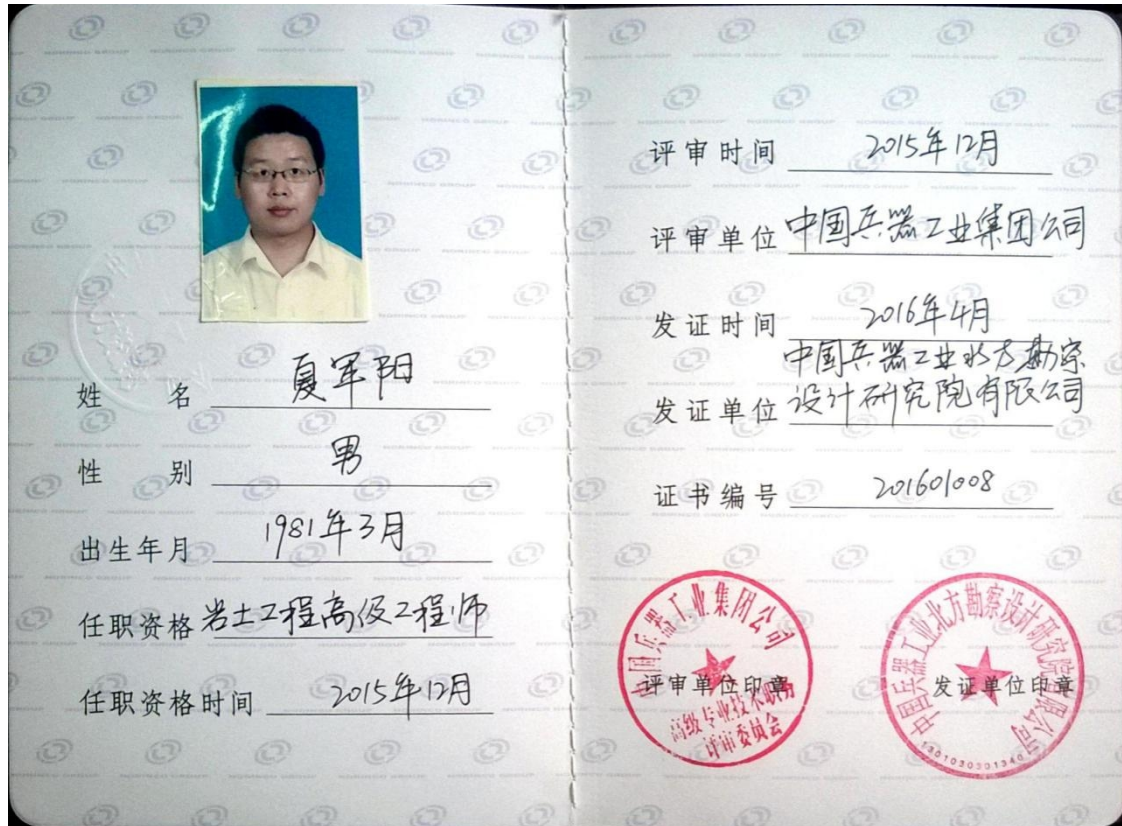 姓 名 夏军阳
性 别 男
出生年月 1981年3月
任职资格 岩土工程高级工程师
任职资格时间 2015年12月
评审时间 2015年12月
评审单位 中国兵器工业集团公司
发证时间 2016年4月
中国兵器工业北方勘察
发证单位 设计研究院有限公司
证书编号 201601008
中国兵器工业集团公司
评审单位印章
高级专业技术职务
评审委员会
中国兵器工业北方勘察设计研究院有限公司
发证单位印章
1301030301340